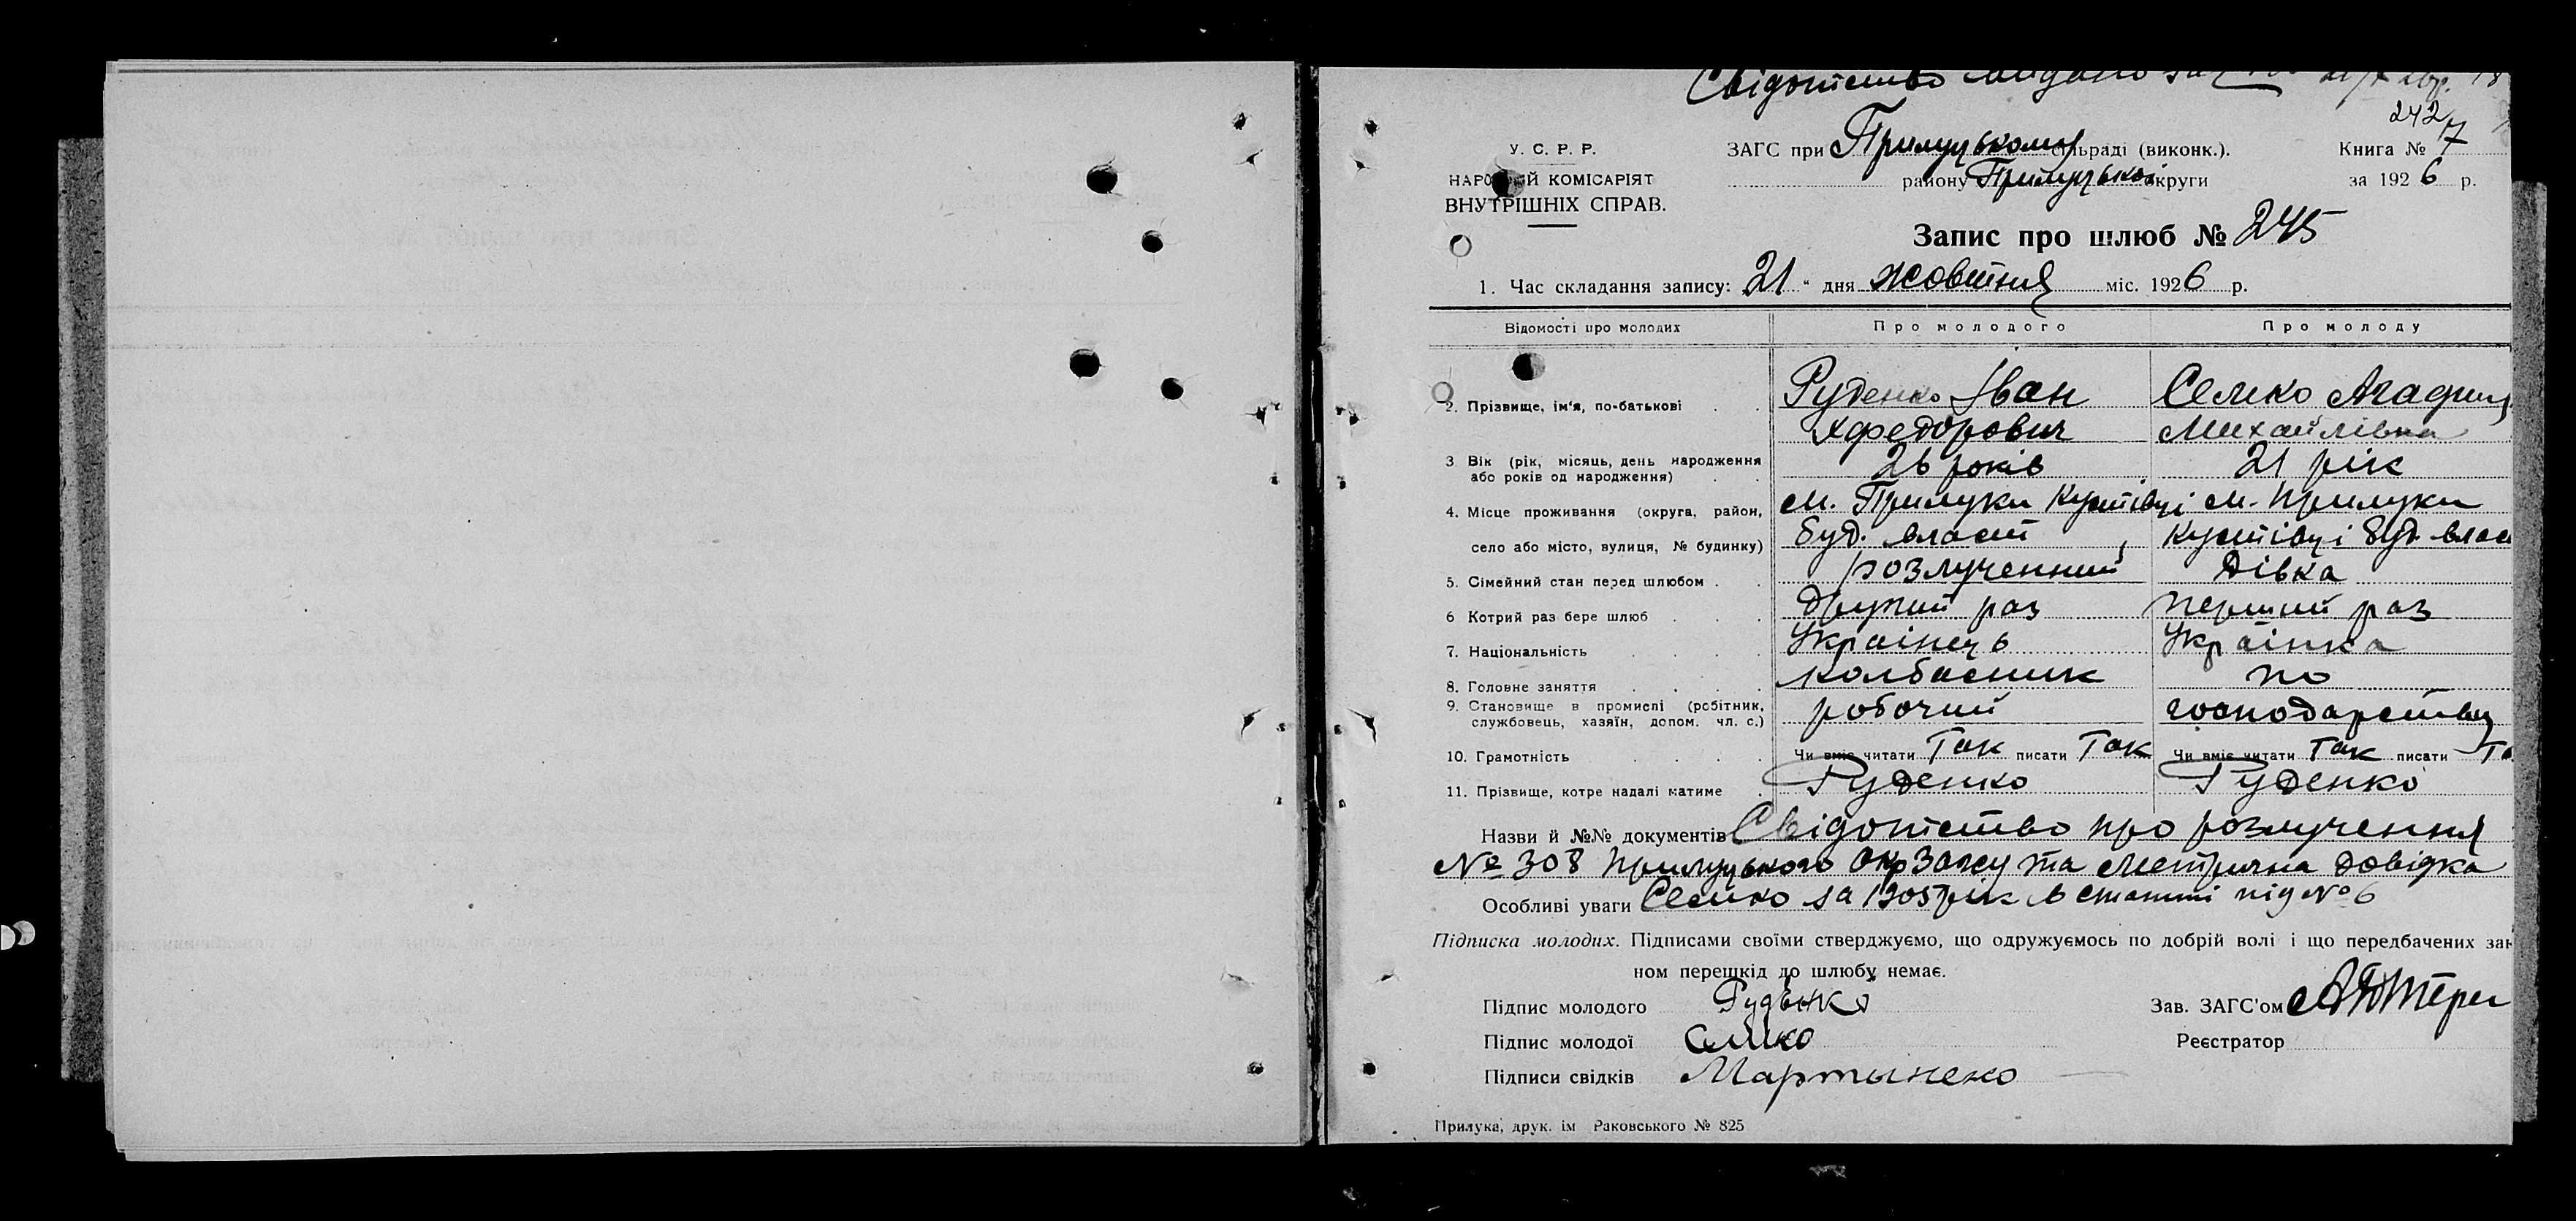 Свідотство видано за
242
У. С. Р. Р.
ЗАГС при Прилуцькому сільраді (виконк.).
Книга № 7
НАРОДНИЙ КОМІСАРІЯТ
району Прилуцької округи
за 1926 р.
ВНУТРІШНІХ СПРАВ.
Запис про шлюб № 245
1. Час складання запису: 21 " дня жовтня міс. 1926 р.
Відомості про молодих Про молодого Про молоду
2. Прізвище, ім'я, по-батькові Руденко Іван Семко
Хфедорович Михайлівна
3 Вік (рік, місяць, день народження
або років од народження) 26 років 21 рік
4. Місце проживання (округа, район, м. Прилуки Кустівці м. Прилуки
село або місто, вулиця, № будинку) буд. власт Кустівці буд. влас
5. Сімейний стан перед шлюбом розлученний дівка
6 Котрий раз бере шлюб другий раз перший раз
7. Національність Українець Українка
8. Головне заняття колбасник по
9. Становище в промислі (робітник,
службовець, хазяїн, допом. чл. с.) робочий господарству
10. Грамотність Чи вміє читати Так писати Так Чи вміє читати Так писати Та
11. Прізвище, котре надалі матиме Руденко Руденко
Назви й №№ документів Свідотство про розлучення
№ 308 Прилуцького ОкрЗагсу та метрична довідка
Особливі уваги Семко за 1905 рік в статті під № 6
Підписка молодих. Підписами своїми стверджуємо, що одружуємось по добрій волі і що передбачених зак
ном перешкід до шлюбу немає.
Підпис молодого Руденко
Зав. ЗАГС'ом
Підпис молодої Семко
Реєстратор
Підписи свідків Мартыненко
Прилука, друк. ім Раковського № 825